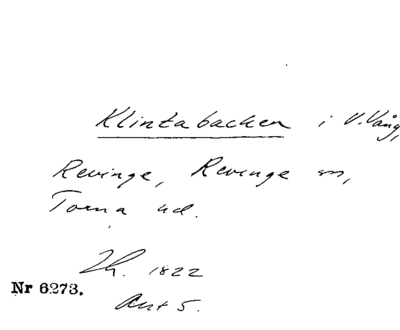 Klintabacken i V. Vång,
Revinge, Revinge sn,
Torna hd.
Lh. 1822
Nr 6273.
Akt 5.